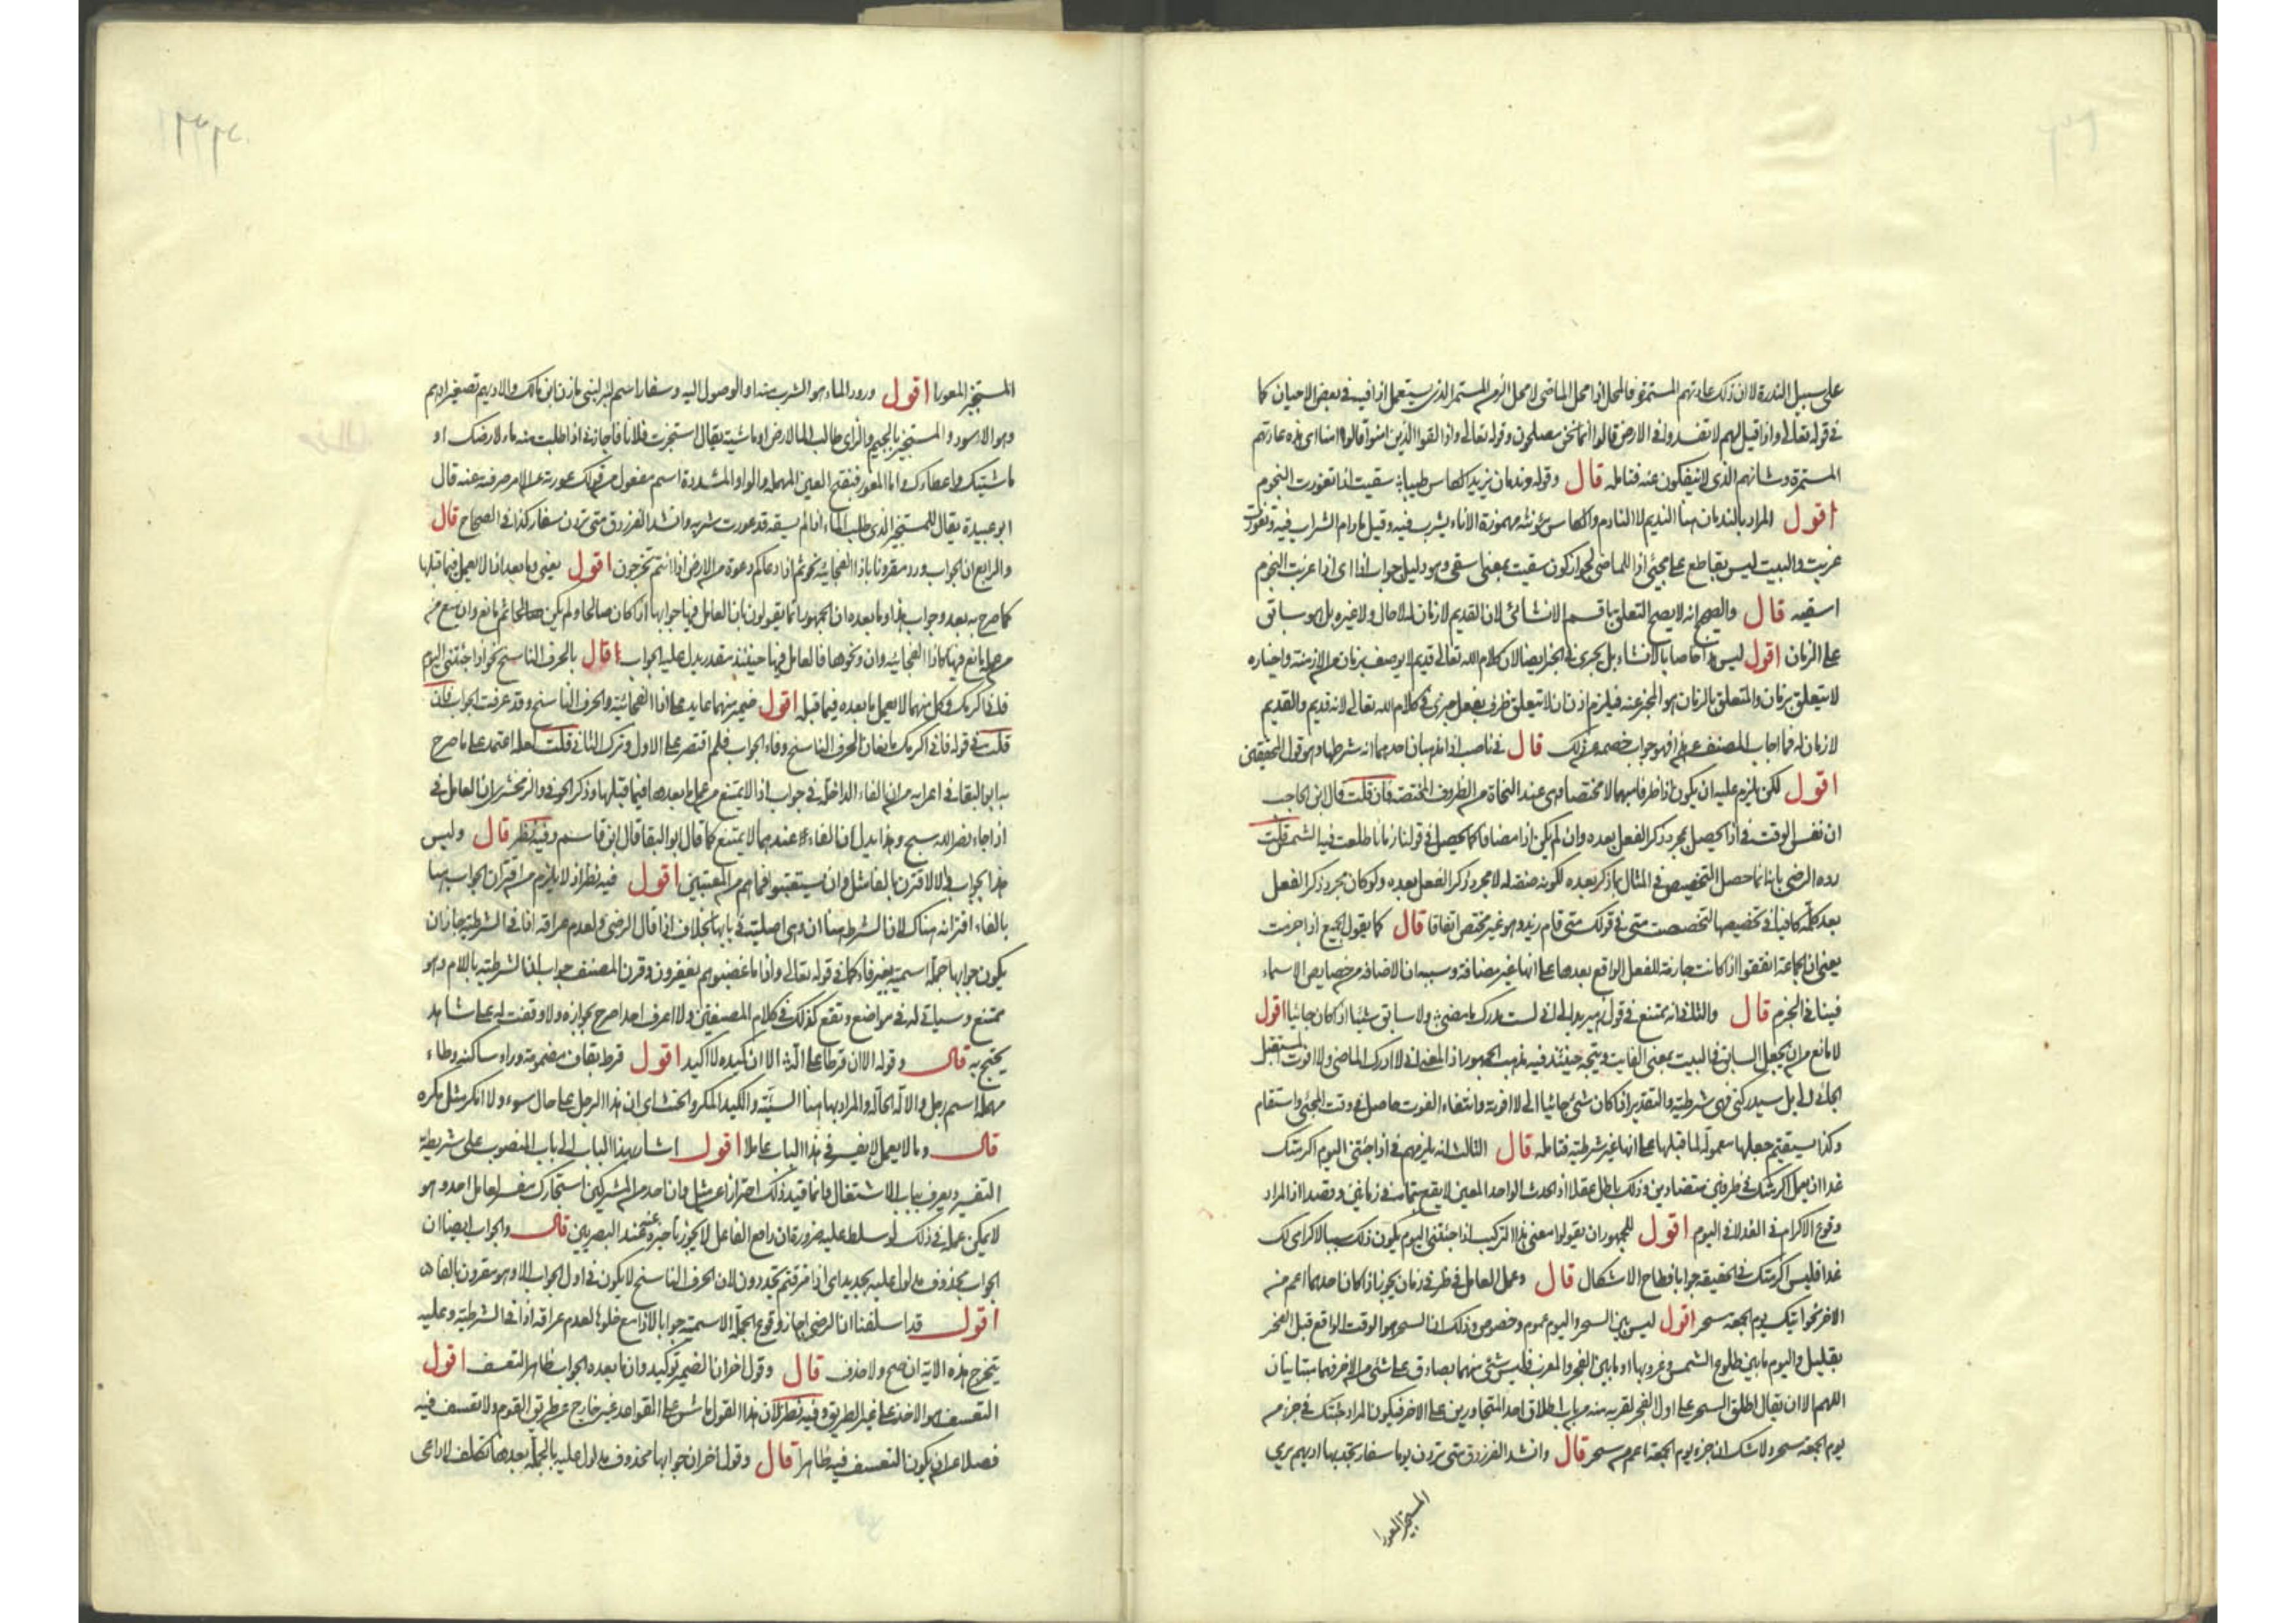 على سبيل الندرة لا ان ذلك عادتهم المستمرة فالمحل اذا محل الماضى لا محل الزمن المستمر الذى يستعمل اذا فيه فى بعض الاحيان كما
فى قوله تعالى واذا قيل لهم لا تفسدوا فى الارض قالوا انما نحن مصلحون وقوله تعالى واذا لقوا الذين امنوا قالوا امنا اى هذه عادتهم
المستمرة وشانهم الذى لا ينفكون عنه فتامله قال وقوله وندمان يزيد الكاس طيبا سقيت اذا تغورت النجوم
اقول المراد بالندمان هنا النديم لا النادم والكاس مؤنثه مهموزة الاناء يشرب فيه وقيل ما دام الشراب فيه وتغورت
غربت والبيت ليس بقاطع على مجئ اذا للماضى لجواز كون سقيت بمعنى اسقى وهو دليل جواب اذا اى اذا غربت النجوم
اسقيه قال والصحيح انه لا يصح التعلق باقسم الانشائى لان القديم لا زمان له لا حال ولا غيره بل هو سابق
على الزمان اقول ليس هذا خاصا بالانشاء بل يجرى فى الخبر ايضا لان كلام الله تعالى قديم لا يوصف بزمان من الازمنة واخباره
لا يتعلق بزمان والمتعلق بالزمان هو المخبر عنه فيلزم اذن ان لا يتعلق ظرف بفعل خبرى فى كلام الله تعالى لانه قديم والقديم
لا زمان له فما اجاب المصنف عن هذا فهو جواب خصمه عن ذلك قال فى ناصب اذا مذهبان احدهما انه شرطها وهو قول المحققين
اقول لكن يلزم عليه ان يكون اذا ظرفا مبهما لا مختصا وهى عند النحاة من الظروف المختصة فان قلت قال ابن الحاجب
ان نفس الوقت فى اذا يحصل بمجرد ذكر الفعل بعده وان لم يكن اذا مضافا كما يحصل فى قولنا زمانا طلعت فيه الشمس قلت
رده الرضى بانه انما حصل التخصيص فى المثال بما ذكر بعده لكونه صفة له لا مجرد ذكر الفعل بعده ولو كان مجرد ذكر الفعل
بعد كلمة كافيا فى تخصيصها لتخصصت متى فى قولك متى قام زيد وهو غير مختص اتفاقا قال كما يقول الجميع اذا جزمت
يعنى ان الجماعة اتفقوا اذا كانت جازمة للفعل الواقع بعدها على انها غير مضافة وسببه ان الاضافة من خصايص الاسماء
فينافى الجزم قال والثانى انه يمتنع فى قول زهير بدا لى انى لست مدرك ما مضى ولا سابق شيئا اذا كان جائيا اقول
لا مانع من ان يجعل السابق فى البيت بمعنى الفايت ويتجه حينئذ فيه مذهب الجمهور اذ المعنى انى لا ادرك الماضى ولا افوت المستقبل
الجائى الى بل سيدركنى فهى شرطية والتقدير اذا كان شئ جائيا الى لا افوته وانتفاء الفوت حاصل فى وقت المجئ واستقام
وكذا يستقيم جعلها معمولة لما قبلها على انها غير شرطية فتامله قال الثالث انه يلزمهم فى اذا جئتنى اليوم اكرمتك
غدا ان يعمل اكرمتك فى ظرفين متضادين وذلك باطل عقلا اذ الحدث الواحد المعين لا يقع بتمامه فى زمانين وقصدا اذ المراد
وقوع الاكرام فى الغد لا فى اليوم اقول للجمهور ان يقولوا معنى هذا التركيب اذا جئتنى اليوم يكون ذلك سببا لاكرامى لك
غدا فليس اكرمتك فى الحقيقه جوابا فطاح الاشكال قال وعمل العامل فى ظرفى زمان يجوز اذا كان احدهما اعم من
الاخر نحو اتيك يوم الجمعة سحر اقول ليس بين السحر واليوم عموم وخصوص وذلك ان السحر هو الوقت الواقع قبل الفجر
بقليل واليوم ما بين طلوع الشمس وغروبها او ما بين الفجر والمغرب فليس شئ منهما بصادق على شئ من الاخر فهما متباينان
اللهم الا ان يقال اطلق السحر على اول الفجر لقربه منه من باب اطلاق احد المتجاورين على الاخر فيكون المراد جئتك فى جزء من
يوم الجمعة سحر ولا شك ان جزء يوم الجمعة اعم من سحر قال وانشد الفرزدق متى تردن يوما سفار تجد بها اديهم يرمى
المستجيز المعورا
المستجيز المعورا اقول ورود الماء هو الشرب منه او الوصول اليه وسفار اسم لبئر لبنى مازن ابن مالك والاديهم تصغير ادهم
وهو الاسود والمستجيز بالجيم والزاى طالب الماء لارض او ماشية يقال استجزت فلانا فاجازنى اذا طلبت منه ماء لارضك او
ماشيتك واعطاءك واما المعور فبفتح العين المهملة والواو المشددة اسم مفعول من قولك عورته عن الامر صرفته عنه قال
ابو عبيدة يقال للمستجيز الذى طلب الماء اذا لم يسقه قد عورت شربه وانشد الفرزدق متى تردن سفار كذا فى الصحاح قال
والرابع ان الجواب ورد مقرونا باذا الفجائية نحو ثم اذا دعاكم دعوة من الارض اذا انتم تخرجون اقول يعنى وما بعد اذا لا يعمل فيما قبلها
كما صرح به بعد وجواب هذا وما بعده ان الجمهور انما يقولون بان العامل فيها جوابها اذا كان صالحا ولم يكن ثم مانع وان منع من
عمل مانع فيها كاذا الفجائية وان ونحوها فالعامل فيها حينئذ مقدر يدل عليه الجواب قال بالحرف الناسخ نحو اذا جئتنى اليوم
فانى اكرمك وكل منهما لا يعمل ما بعده فيما قبله اقول ضمير منهما عايد على اذا الفجائية والحرف الناسخ وقد عرفت الجواب فان
قلت فى قوله فانى اكرمك مانعان الحرف الناسخ وفاء الجواب فلم اقتصر على الاول وترك الثانى قلت لعله اعتمد على ما صرح
به ابو البقا فى اعرابه من ان الفاء الداخلة فى جواب اذا لا يمتنع من عمل ما بعدها فيما قبلها وذكر الحوفى والزمخشرى ان العامل فى
اذا جاء نصر الله سبح وهذا يدل ان الفاء عندهما لا يمتنع كما قال ابو البقا قال ابن قاسم وفيه نظر قال وليس
هذا الجواب والا لاقترن بالفا مثل وان يستعتبوا فما هم من المعتبين اقول فيه نظر اذ لا يلزم من اقتران الجواب هنا
بالفاء اقترانه هناك لان الشرط هنا ان وهى اصلية فى بابها بخلاف اذا قال الرضى ولعدم عراقه اذا فى الشرطية جاز ان
يكون جوابها جملة اسمية بغير فاء كما فى قوله تعالى واذا ما غضبوا هم يغفرون وقرن المصنف جواب ان الشرطية بالام وهو
ممتنع وسياتى له فى مواضع ويقع كذلك فى كلام المصنفين ولا اعرف احدا صرح بجوازه ولا وقفت له على شاهد
يحتج به قال وقوله الا ان قرطا على الة الا اننى كيده لا اكيد اقول قرط بقاف مضمومة وراء ساكنه وطاء
مهملة اسم رجل والالة الحالة والمراد بها هنا السيئة والكيد المكر والخبث اى ان هذا الرجل على حال سوء ولا امكر مثل مكره
قال وما لا يعمل لا يفسر فى هذا الباب عاملا اقول اشار بهذا الباب الى باب المنصوب على شريطة
التفسير ويعرف بباب الاشتغال وانما قيد ذلك احترازا عن مثل وان احد من المشركين استجارك مفسر لعامل احد وهو
لا يمكن عمله فى ذلك لو سلط عليه ضرورة ان رافع الفاعل لا يجوز تاخيره عنه عند البصريين قال والجواب ايضا ان
الجواب محذوف مدلول عليه بجديد اى اذا مزقتم تجددون لان الحرف الناسخ لا يكون فى اول الجواب الا وهو مقرون بالفاء
اقول قد اسلفنا ان الرضى اجاز وقوع الجملة الاسمية جوابا لاذا مع خلوها لعدم عراقه اذا فى الشرطية وعليه
يتخرج هذه الاية ان صح ولا حذف قال وقول اخر ان الضمير توكيد وان ما بعده الجواب ظاهر التعسف اقول
التعسف هو الاخذ على غير الطريق وفيه نظر لان هذا القول ماش على القواعد غير خارج عن طريق القوم ولا تعسف فيه
فضلا عن ان يكون التعسف فيه ظاهرا قال وقول اخر ان جوابها محذوف مدلول عليه بالجملة بعدها تكلف لا داعى